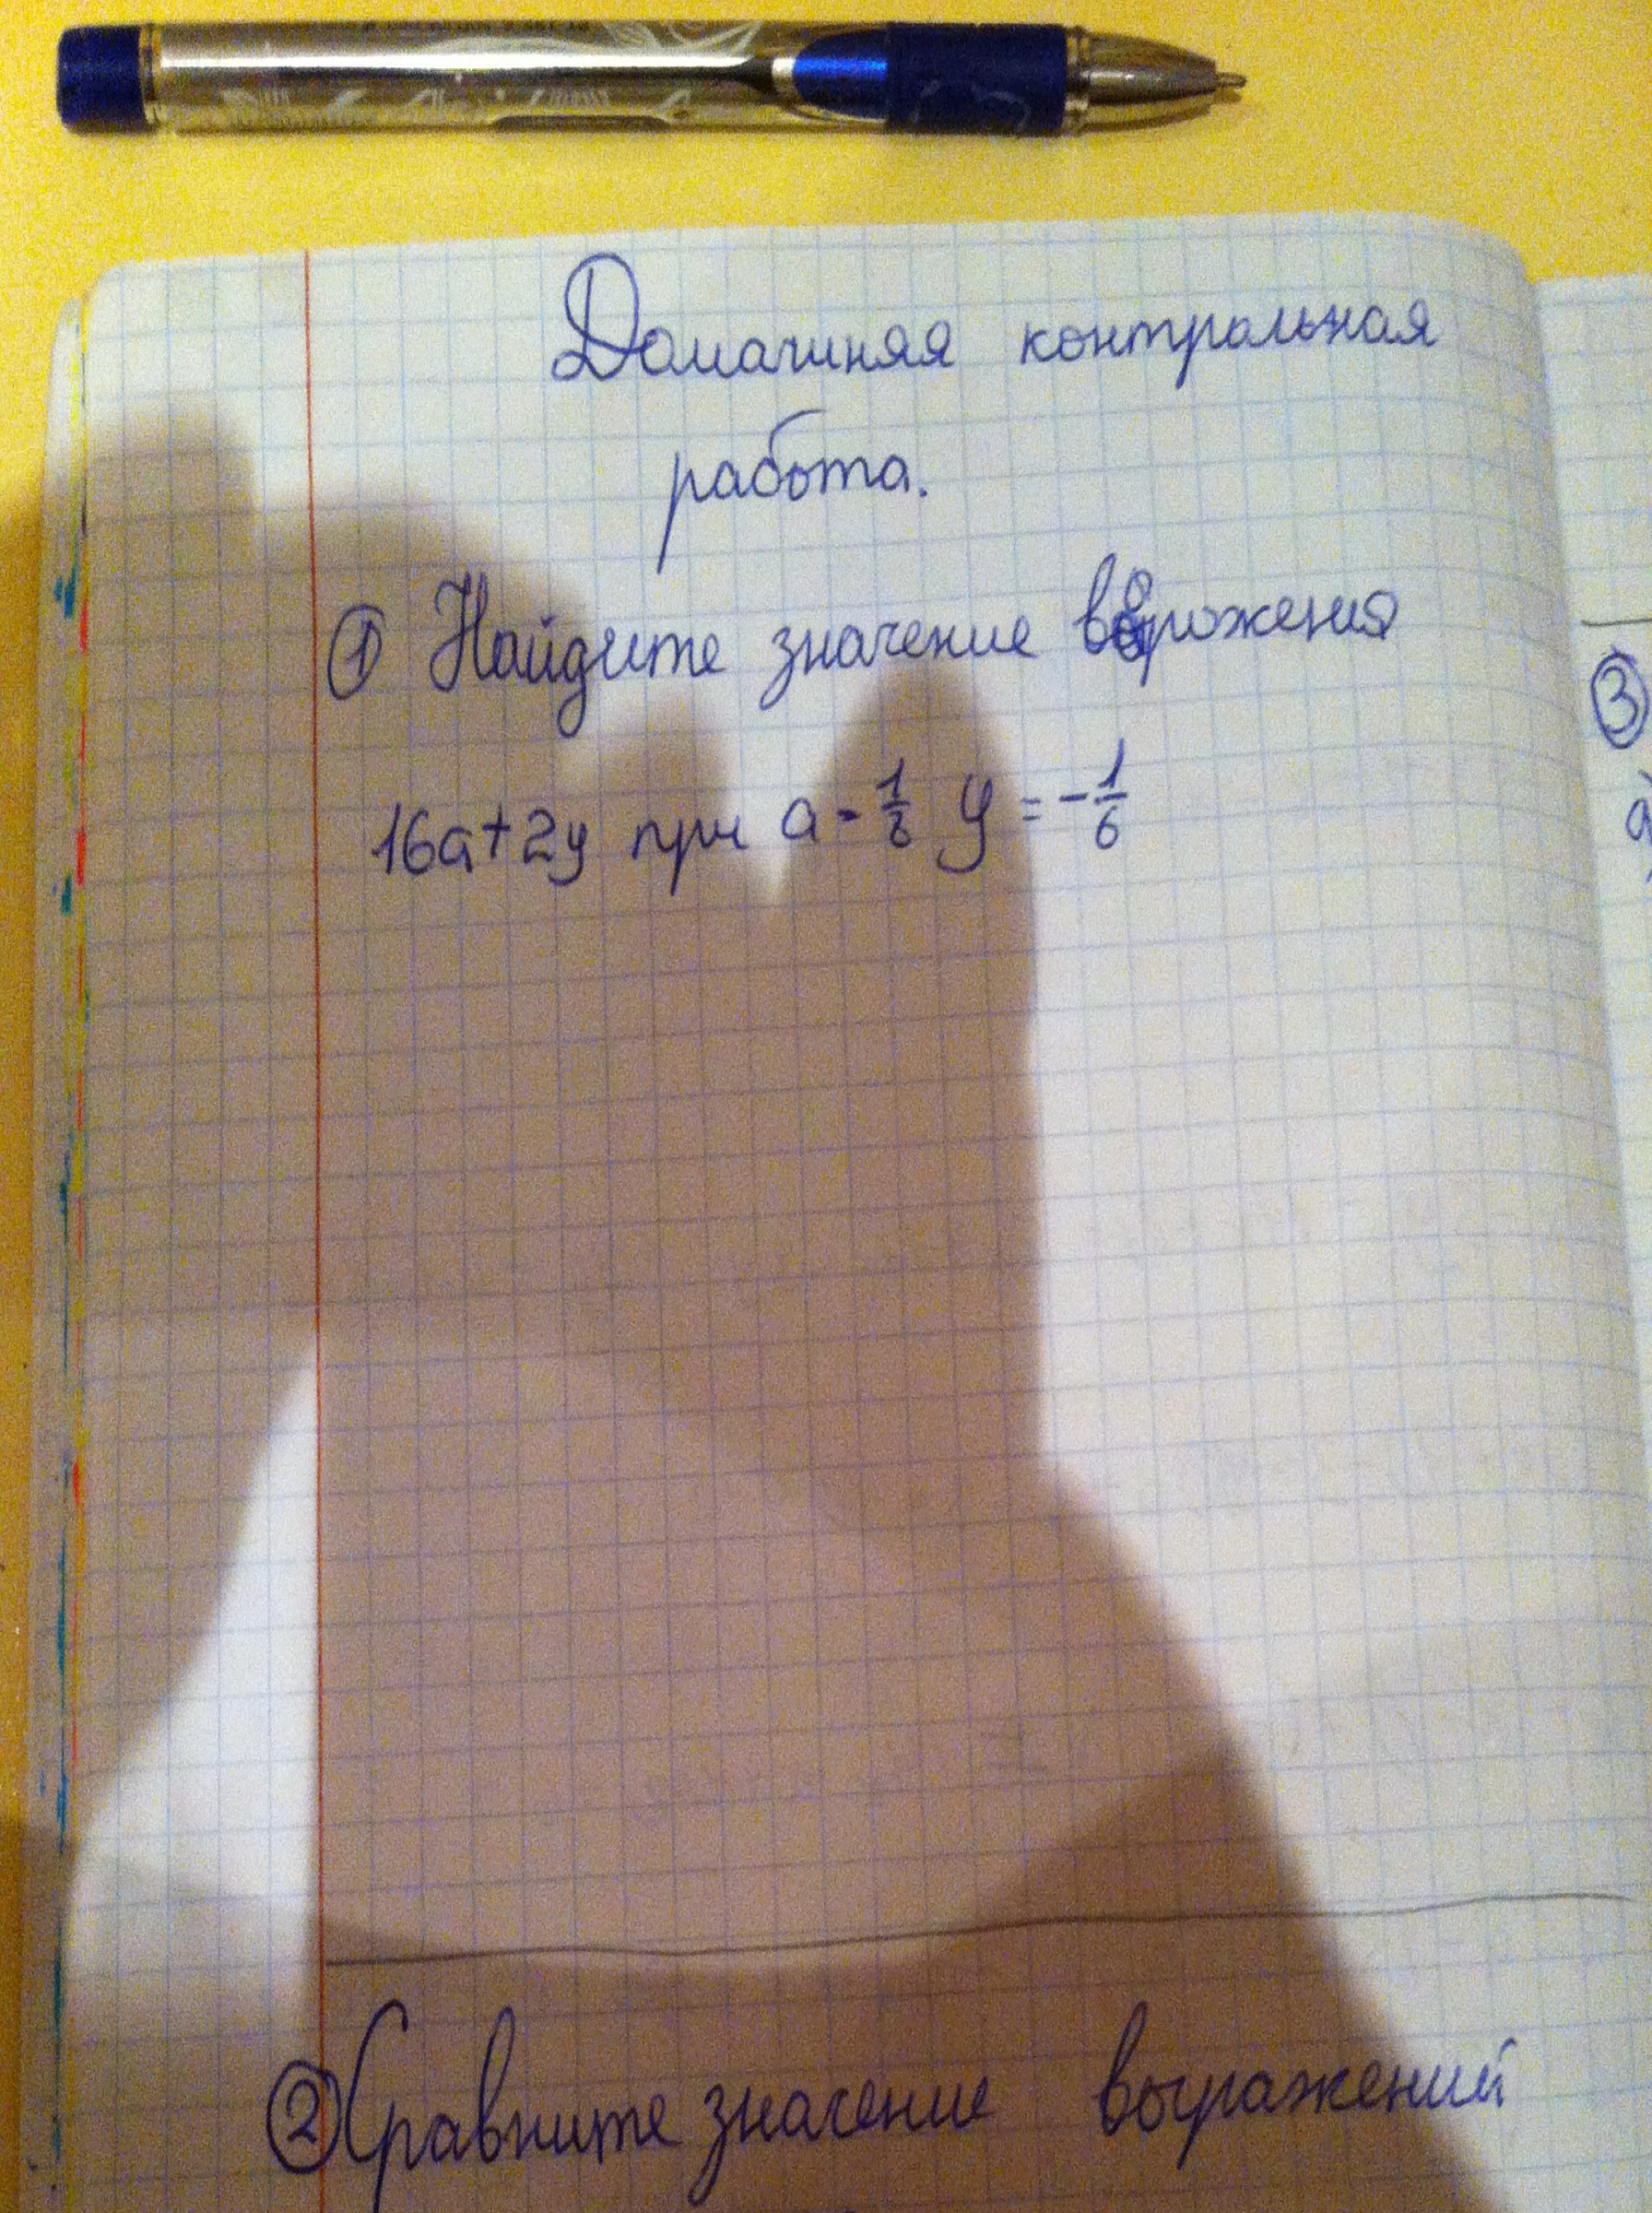 Домашняя контрольная
работа.
① Найдите значение выражения
16а+2у при а = 1/8 у = -1/6
③
а)
② Сравните значение выражений